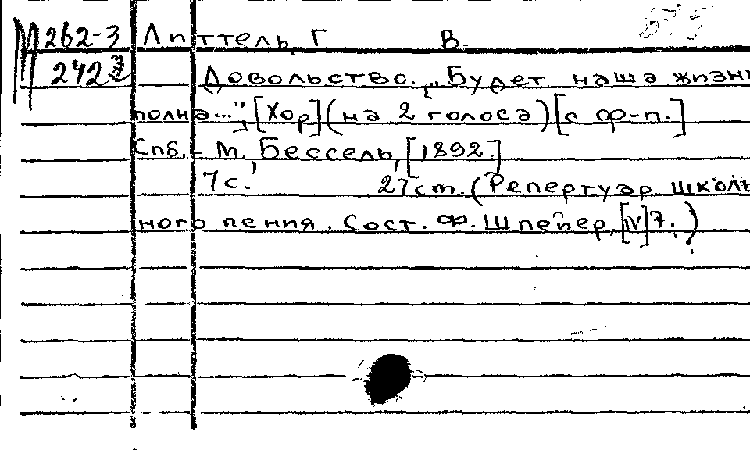 М 262-3 Липтель, Г В.
2423 Довольство. „Будет наша жизнь
полна...“; [Хор] (на 2 голоса) [с ф-п.]
Спб. - М. Бессель, [1892.]
7 с. 27 ст. (Репертуар школь
ного пения. Сост. Ф. Шпейер, [IV] 7.)